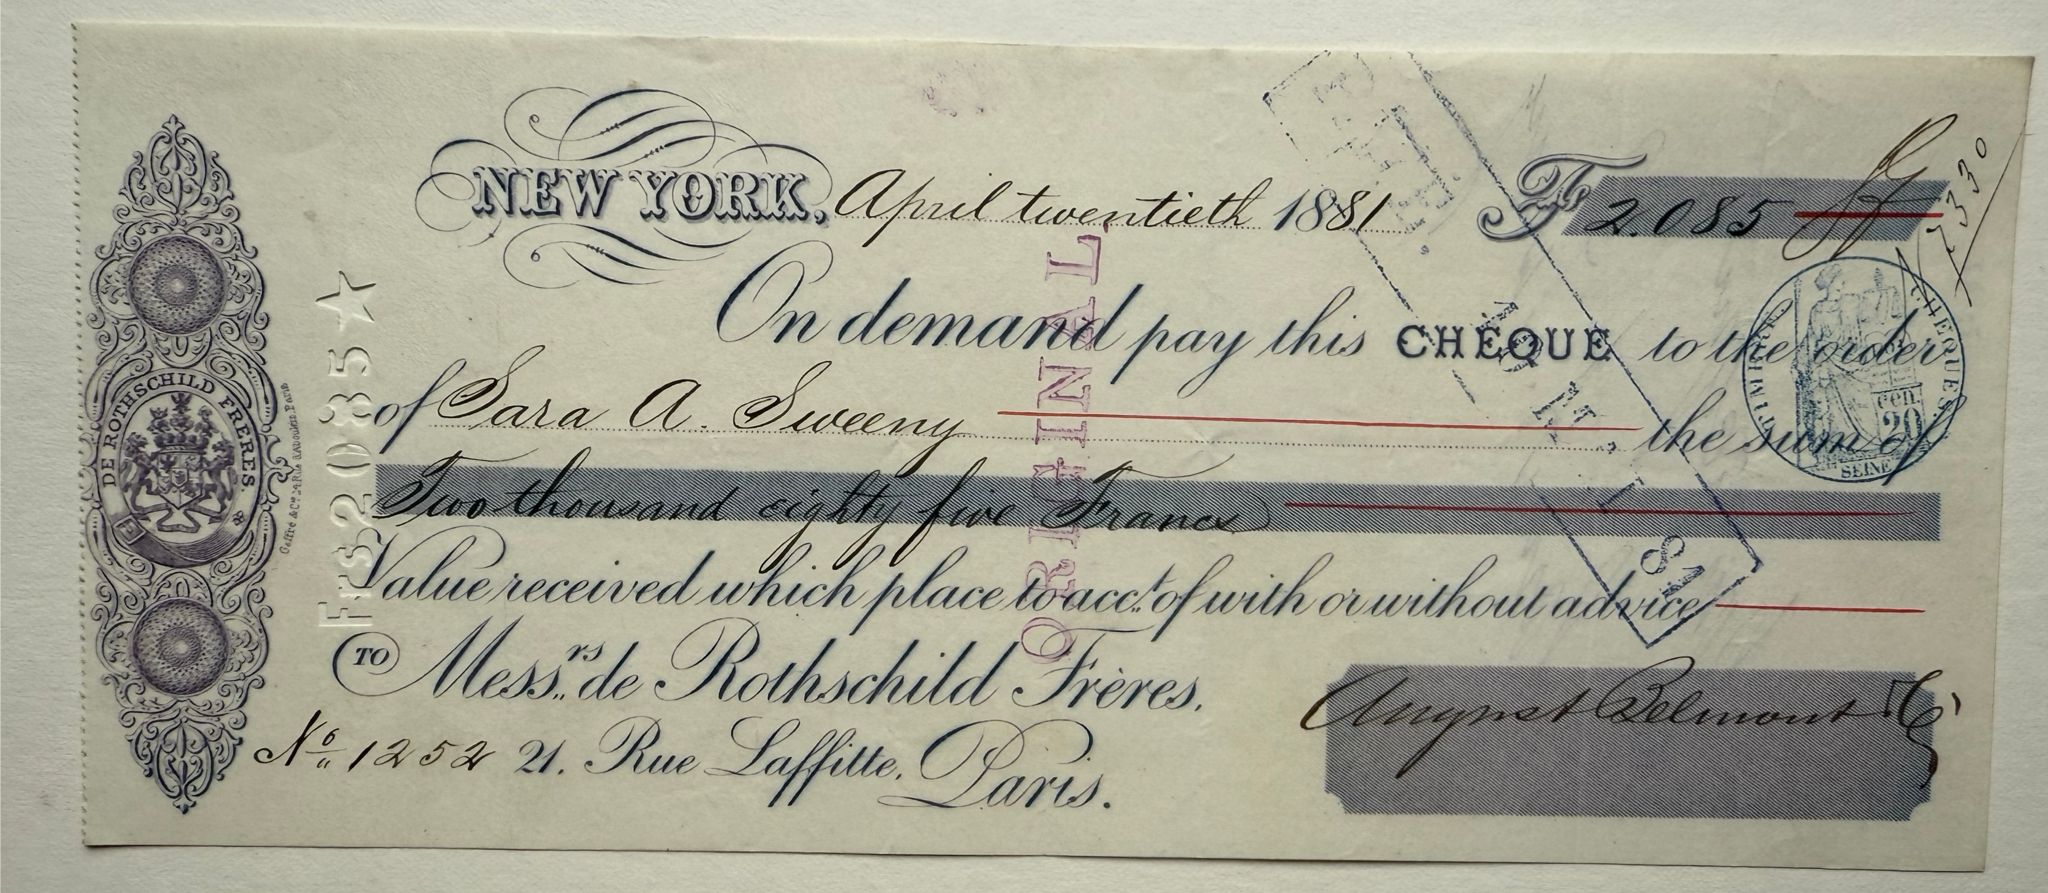 NEW YORK, April twentieth 1881
Fs 2.085
7330
On demand pay this CHÈQUE to the order
of Sara A. Sweeny the sum of
Two thousand eighty five Francs
Value received which place to acct. of with or without advice
TO Messrs. de Rothschild Frères.
No. 1252 21. Rue Laffitte. Paris.
August Belmont & Co
DE ROTHSCHILD FRERES.
Frs2085☆
ORIGINAL
TIMBRE CHEQUES.
cen.
20
SEINE
81